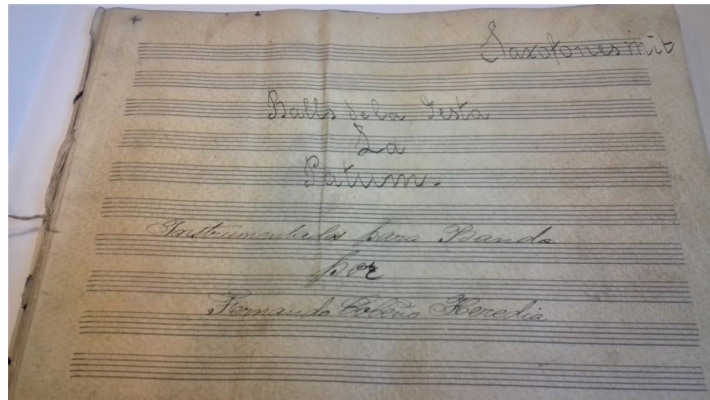 Saxofones mib
Balls de la Festa
La
Patum.
Instrumentados para Banda
por
Fernando Heredia